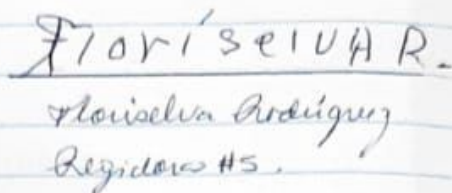 FloríselvA R.
Floriselva Rodríguez
Regidora #5.